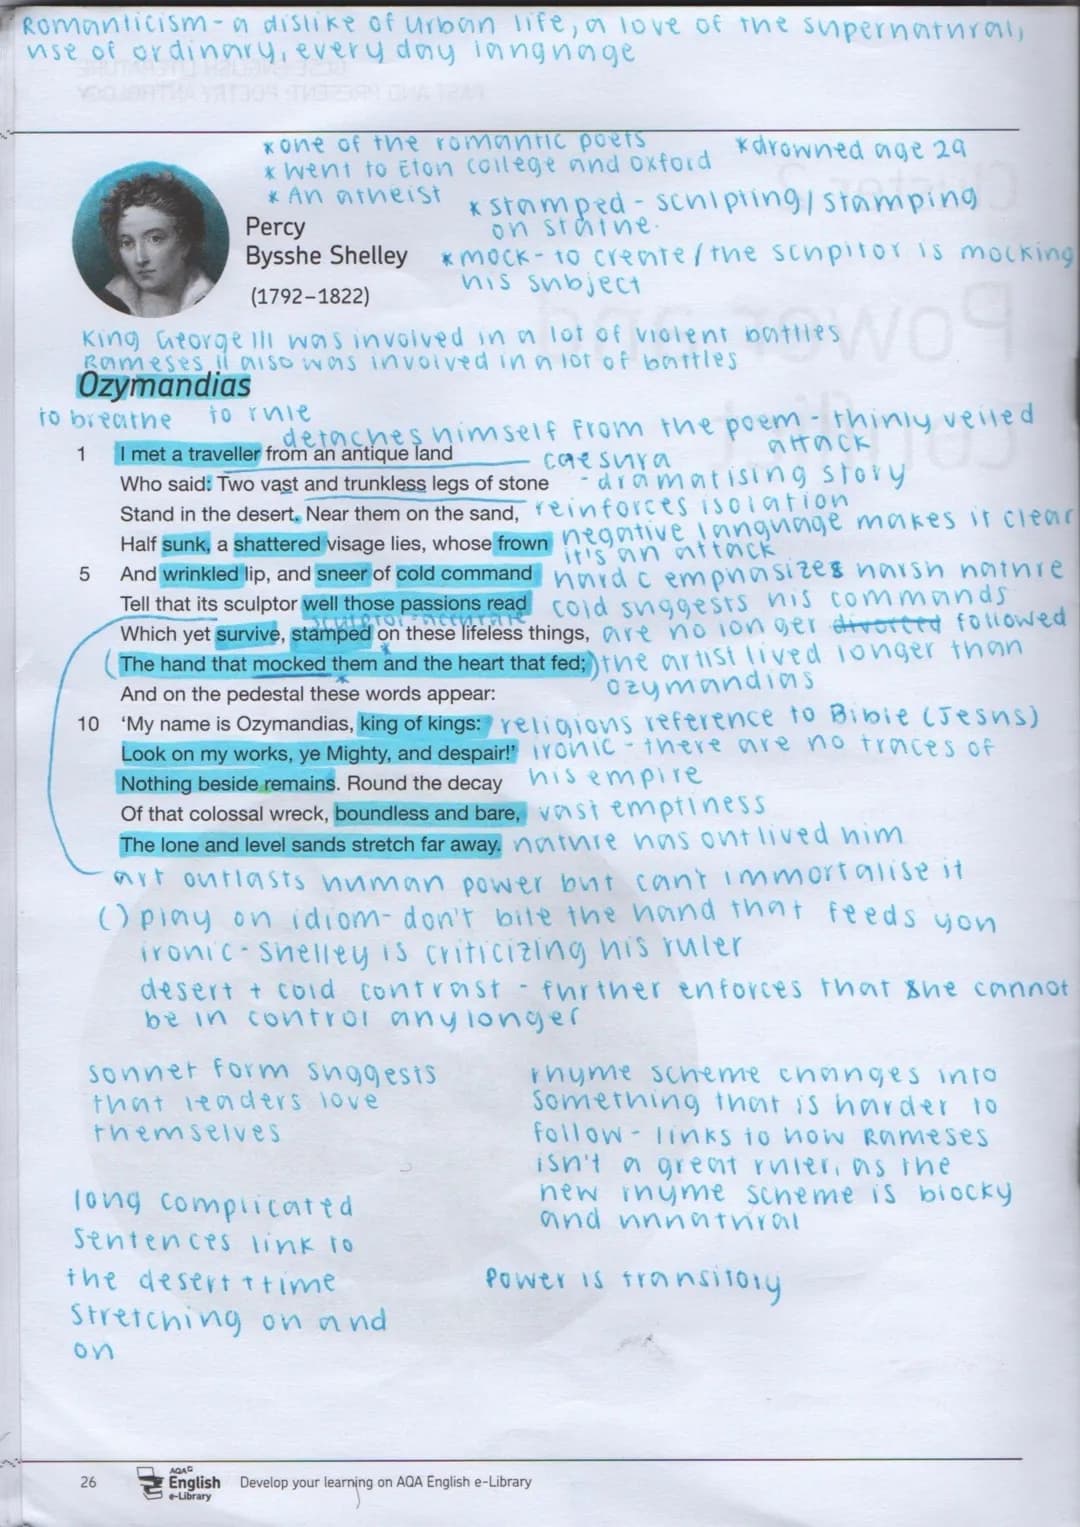 Romanticism - a dislike of urban life, a love of the supernatural,
use of ordinary, every day language
* one of the romantic poets
* drowned age 29
* Went to Eton College and Oxford
* An atheist
* stamped - sculpting / stamping
on statue.
Percy
Bysshe Shelley
(1792–1822)
* mock - to create / the sculptor is mocking
his subject
King George III was involved in a lot of violent battles
Rameses II also was involved in a lot of battles
Ozymandias
to breathe to rule
detaches himself from the poem - thinly veiled
attack
1 I met a traveller from an antique land
caesura
Who said: Two vast and trunkless legs of stone - dramatising story
Stand in the desert. Near them on the sand, reinforces isolation
Half sunk, a shattered visage lies, whose frown negative language makes it clear
it's an attack
5 And wrinkled lip, and sneer of cold command hard c emphasizes harsh nature
Tell that its sculptor well those passions read cold suggests his commands
sculptor-accurate
Which yet survive, stamped on these lifeless things, are no longer divorced followed
The hand that mocked them and the heart that fed; the artist lived longer than
Ozymandias
And on the pedestal these words appear:
10 ‘My name is Ozymandias, king of kings: religious reference to Bible (Jesus)
Look on my works, ye Mighty, and despair!’ ironic - there are no traces of
his empire
Nothing beside remains. Round the decay
Of that colossal wreck, boundless and bare, vast emptiness
The lone and level sands stretch far away. nature has outlived him
art outlasts human power but can't immortalise it
() play on idiom - don't bite the hand that feeds you
ironic - Shelley is criticizing his ruler
desert + cold contrast - further enforces that she cannot
be in control any longer
sonnet form suggests
that leaders love
themselves
rhyme scheme changes into
something that is harder to
follow - links to how Rameses
isn't a great ruler, as the
new rhyme scheme is blocky
and unnatural
long complicated
sentences link to
the desert + time
stretching on and
on
Power is transitory
26
AQA
English
e-Library
Develop your learning on AQA English e-Library